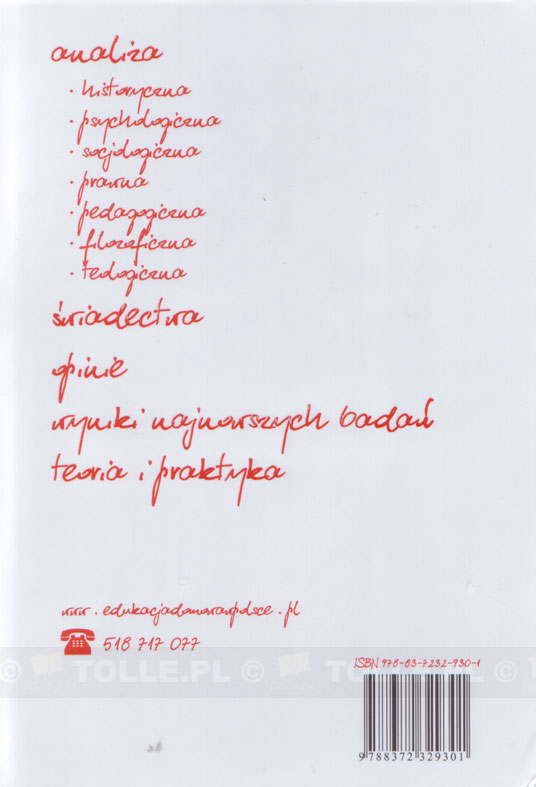 analiza
· historyczna
· psychologiczna
· socjologiczna
· prawna
· pedagogiczna
· filozoficzna
· teologiczna
świadectwa
opinie
wyniki najnowszych badań
teoria i praktyka
www.edukacjadomowawpolsce.pl
518 717 077
© TOLLE.PL © TOLLE.PL ©
ISBN 978-83-7232-930-1
9 788372 329301